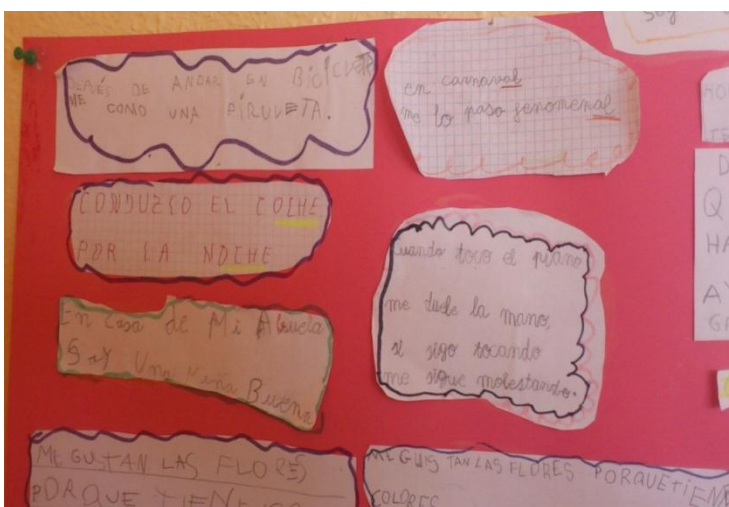 DEPUÉS DE ANDAR EN BICICLETA
ME COMO UNA PIRULETA.
en carnaval
me lo paso fenomenal
CONDUZCO EL COCHE
POR LA NOCHE
Cuando toco el piano
me duele la mano,
si sigo tocando
me sigue molestando.
En Casa de Mi Abuela
Soy Una Niña Buena
ME GUSTAN LAS FLORES
PORQUE TIENEN
ME GUSTAN LAS FLORES PORQUE TIENEN
COLORES
Q
HA
AY
GA